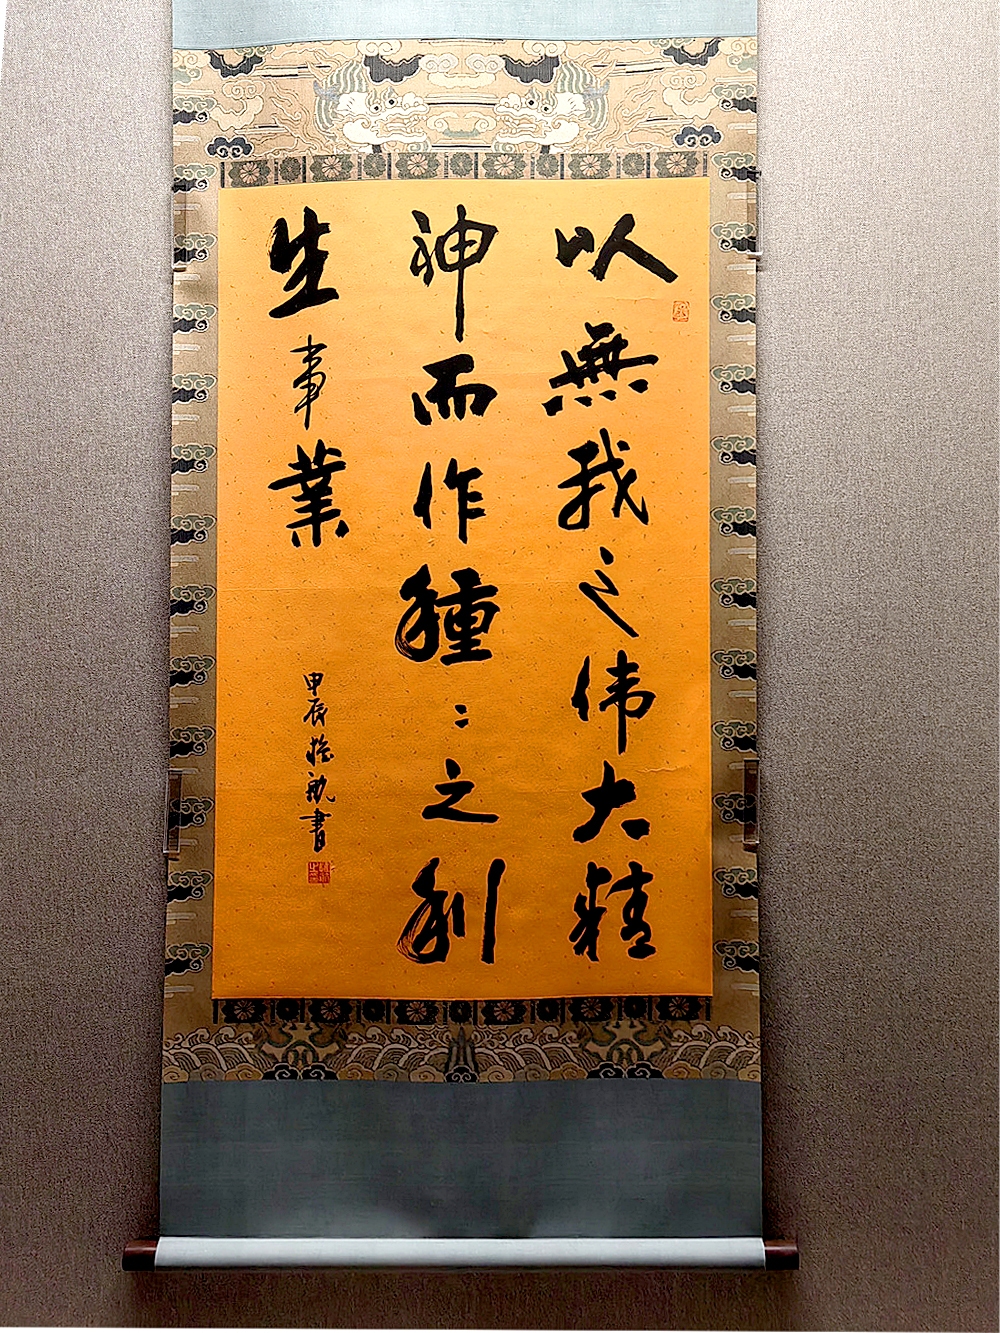 以無我之伟大精
神而作種〻之利
生事業
甲辰 航書